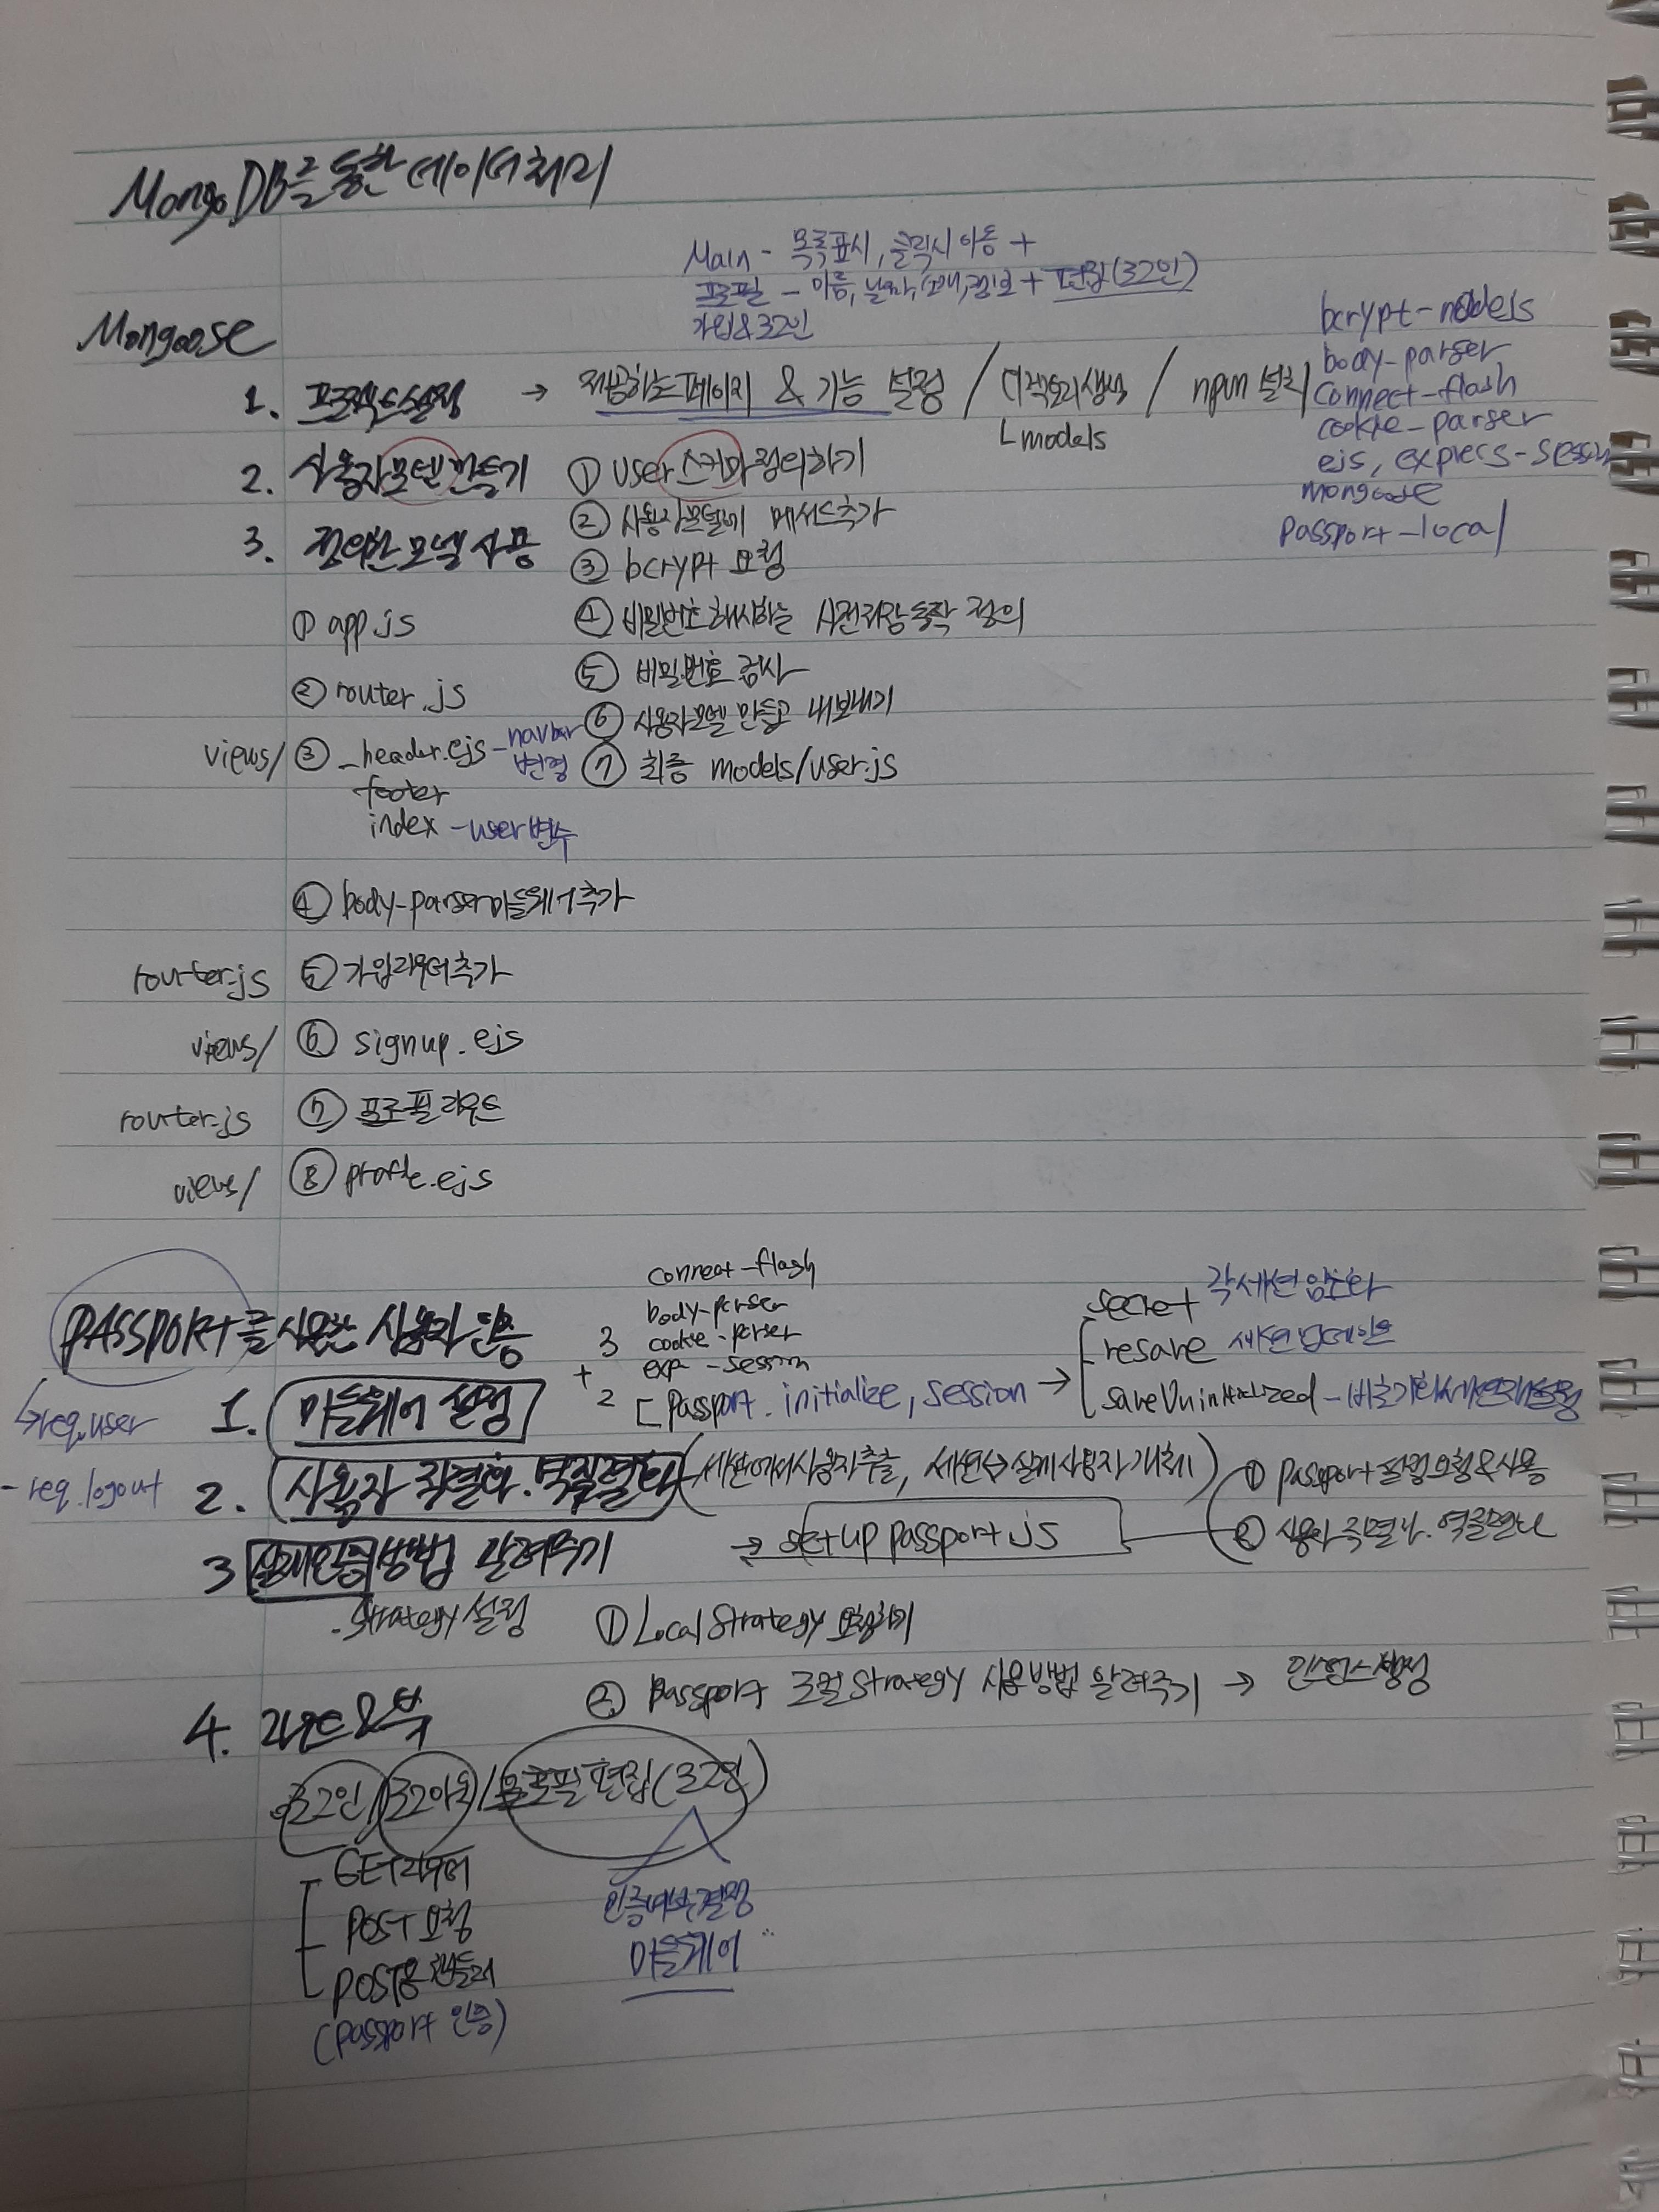 MongoDB를 통한 데이터 처리
Main - 목록표시, 클릭시 이동 +
프로필 - 이름, 날짜, 소개, 정보 + 편집(로그인)
가입&로그인
Mongoose
1. 프로젝트 설정 → 제공하는 페이지 & 기능 설정 / 디렉토리 생성 / npm 설치
└ models
bcrypt-nodejs
body-parser
connect-flash
cookie-parser
ejs, express-session
mongoose
passport-local
2. 사용자 모델 만들기
① user 스키마 정의하기
② 사용자모델에 메서드 추가
③ bcrypt 요청
④ 비밀번호 해시하는 사전저장 동작 정의
⑤ 비밀번호 검사
⑥ 사용자모델 만들고 내보내기
⑦ 최종 models/user.js
3. 정의한 모델 사용
① app.js
② router.js
views/ ③ _header.ejs - navbar 변경
footer
index - user 변수
④ body-parser 미들웨어 추가
router.js ⑤ 가입라우터 추가
views/ ⑥ signup.ejs
router.js ⑦ 프로필 라우트
views/ ⑧ profile.ejs
PASSPORT를 사용한 사용자 인증
↳ req.user
- req.logout
1. 미들웨어 설정
3
connect-flash
body-parser
cookie-parser
exp - session
+
2 [ passport. initialize, session →
secret 각 세션 암호화
resave 세션 업데이트
saveUninitialized - 비초기화 세션 재설정
2. 사용자 직렬화. 역직렬화 (세션에서 사용자 추출, 세션↔실제 사용자 개체)
→ setuppassport.js
① passport 요청 & 사용
② 사용자 직렬화. 역직렬화
3 실제 인증 방법 알려주기
- Strategy 설정
① LocalStrategy 요청하기
② passport 로컬 Strategy 사용방법 알려주기 → 인스턴스 생성
4. 라우트 & 뷰
로그인/로그아웃/프로필 편집(로그인)
GET 라우터
POST 요청
POST용 핸들러
(passport 인증)
인증여부 결정
미들웨어